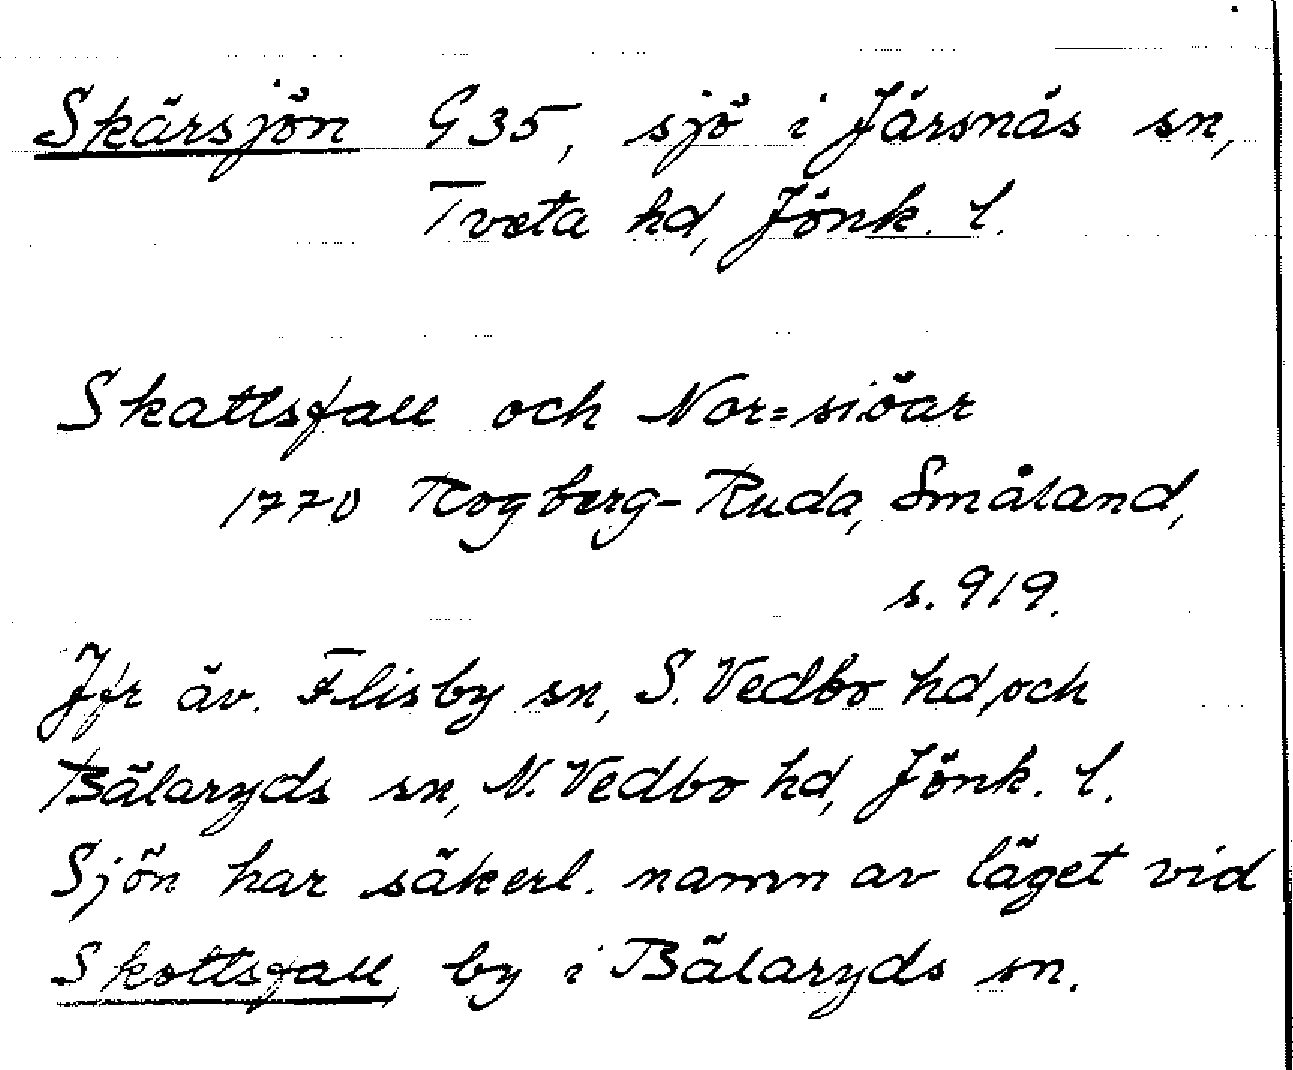 Skärsjön G35, sjö i Järsnäs sn,
Tveta hd, Jönk. l.
Skattsfall och Nor=siöar
1770 Rogberg-Ruda, Småland,
s. 919.
Jfr äv. Flisby sn, S. Vedbo hd, och
Bälaryds sn, N. Vedbo hd, Jönk. l.
Sjön har säkerl. namn av läget vid
Skottsfall, by i Bälaryds sn.